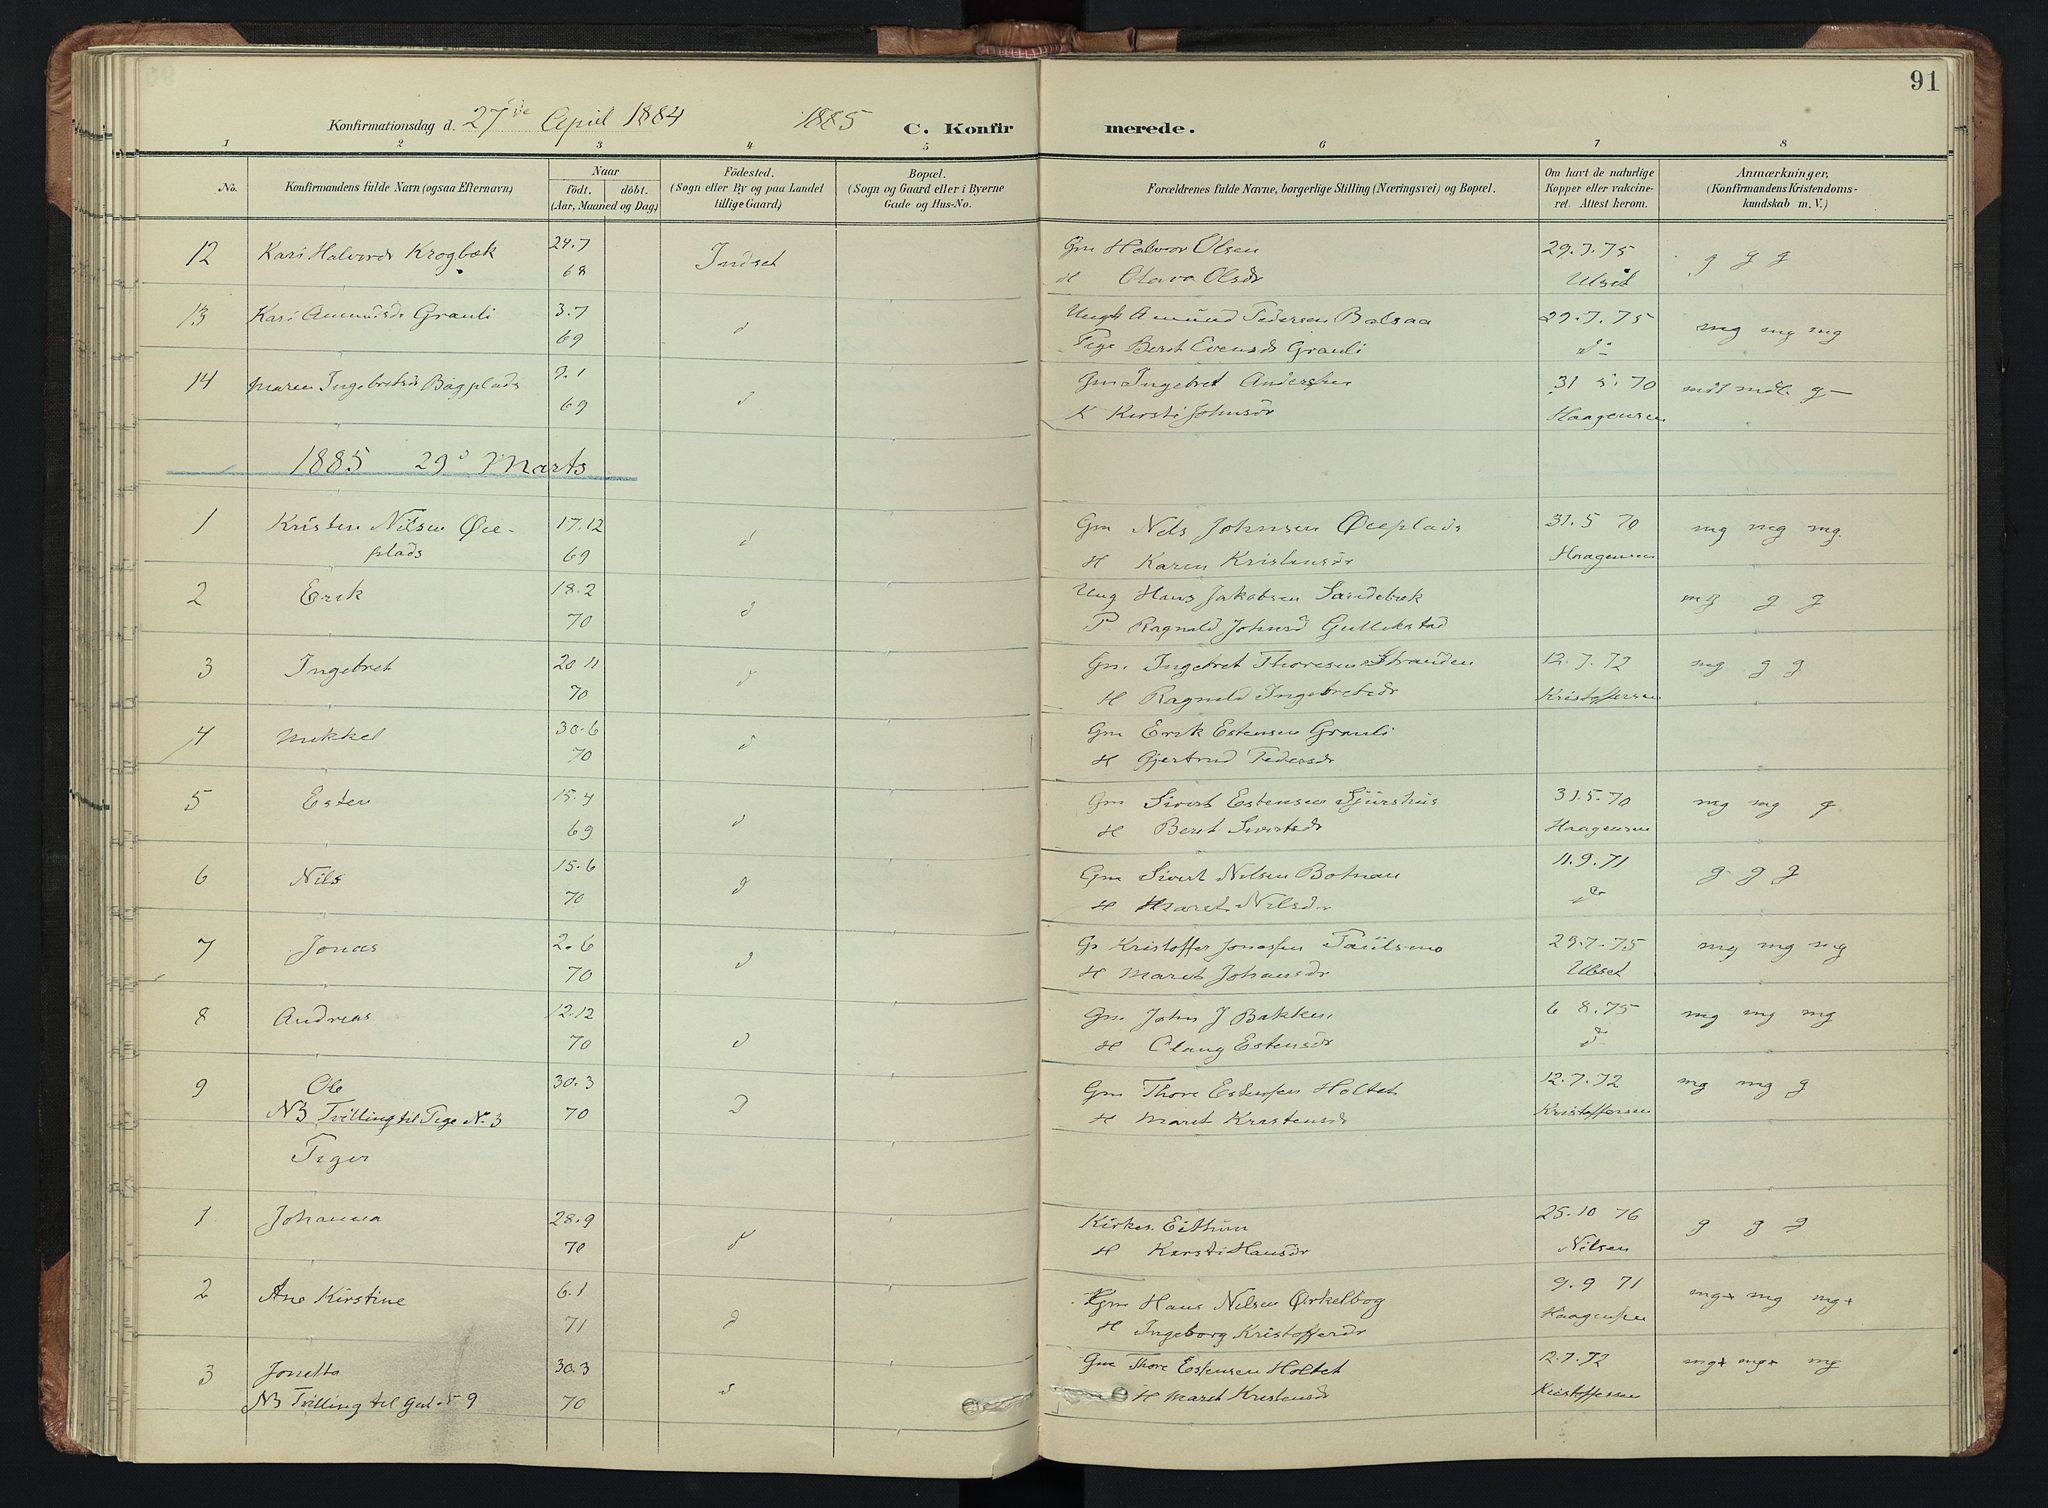 91
Konfirmationsdag d. 27de April 1884 1885 C. Konfirmerede.
1 2 3 4 5 6 7 8
No. Konfirmandens fulde Navn (ogsaa Efternavn) Naar födt. döbt. (Aar, Maaned og Dag) Födested. (Sogn eller By og paa Landet tillige Gaard) Bopæl. (Sogn og Gaard eller i Byerne Gade og Hus-No. Forældrenes fulde Navne, borgerlige Stilling (Næringsvei) og Bopæl. Om havt de naturlige Kopper eller vakcineret. Attest herom. Anmærkninger, (Konfirmandens Kristendomskundskab m. V.)
12 Kari Halvordr Krogbæk 24.7 Indset Gm Halvor Olsen 29.7.75 g g g
68 H Olava Olsdr Ulset
13 Kari Amundsdr Grauli 3.7 d Ungk Amund Pedersen Balsaa 29.7.75 mg mg mg
69 Pige Beret Evensdr Grauli do
14 Maren Ingebretsdr Bagplads 7.1 d Gm Ingebret Anderssen 31 5.70 mdl mdl. g
69 K Kirsti Johnsdr Haagensen
1885 29d Marts
1 Kristen Nilsen Øie- 17.12 d Gm Nels Johnsen Øieplads 31.5 70 mg mg mg.
plads 69 H Karen Kristensdr Haagensen
2 Erik 18.2 d Ung Hans Jakobsen Sandebæk mg g g
70 P. Ragnild Johnsd Gullikstad
3 Ingebret 20 11 d Gm. Ingebret Thoresen Stranden 12.7.72 mg g g
70 H Ragnild Ingebretsdr Kristoffersen
4 Mikkel 30.6 d Gm Erik Estensen Grauli
70 H Gjertrud Pedersdr
5 Esten 15.4 d Gm Sivert Estensen Sjurshus 31.5.70 mg mg g
69 H Beret Sivertsdr Haagensen
6 Nils 15.6 d Gm Sivert Nilsen Botnan 11.9.71 g g g
70 H Maret Nilsdr do
7 Jonas 2.6 d Gs Kristoffer Jonassen Paulsmo 29.7.75 mg mg mg
70 H Maret Johansdr Ulset
8 Andreas 12.12 d Gm John J Bakken 6 8.75 mg mg mg
70 H Olaug Estensdr do
9 Ole 30.3 d Gm Thore Estensen Holtet 12.7.72 mg mg g
NB Tvilling til Pige No 3 70 H Maret Kristensdr Kristoffersen
Piger
1 Johanna 28.9 d Kirkes. Eithun 25.10 76 g g g
70 H Kirsti Hansdr Nilsen
2 Ane Kirstine 6.1 d Gm Hans Nilsen Ørkelbog 9.9 71 mg+ mg mg+
71 H Ingeborg Kristofferdr Haagensen
3 Jonetta 30.3 d Gm Thore Estensen Holtet 12.7.72 mg+ mg+ mg
NB Tvilling til Gut 9 70 H Maret Kristensdr Kristoffersen